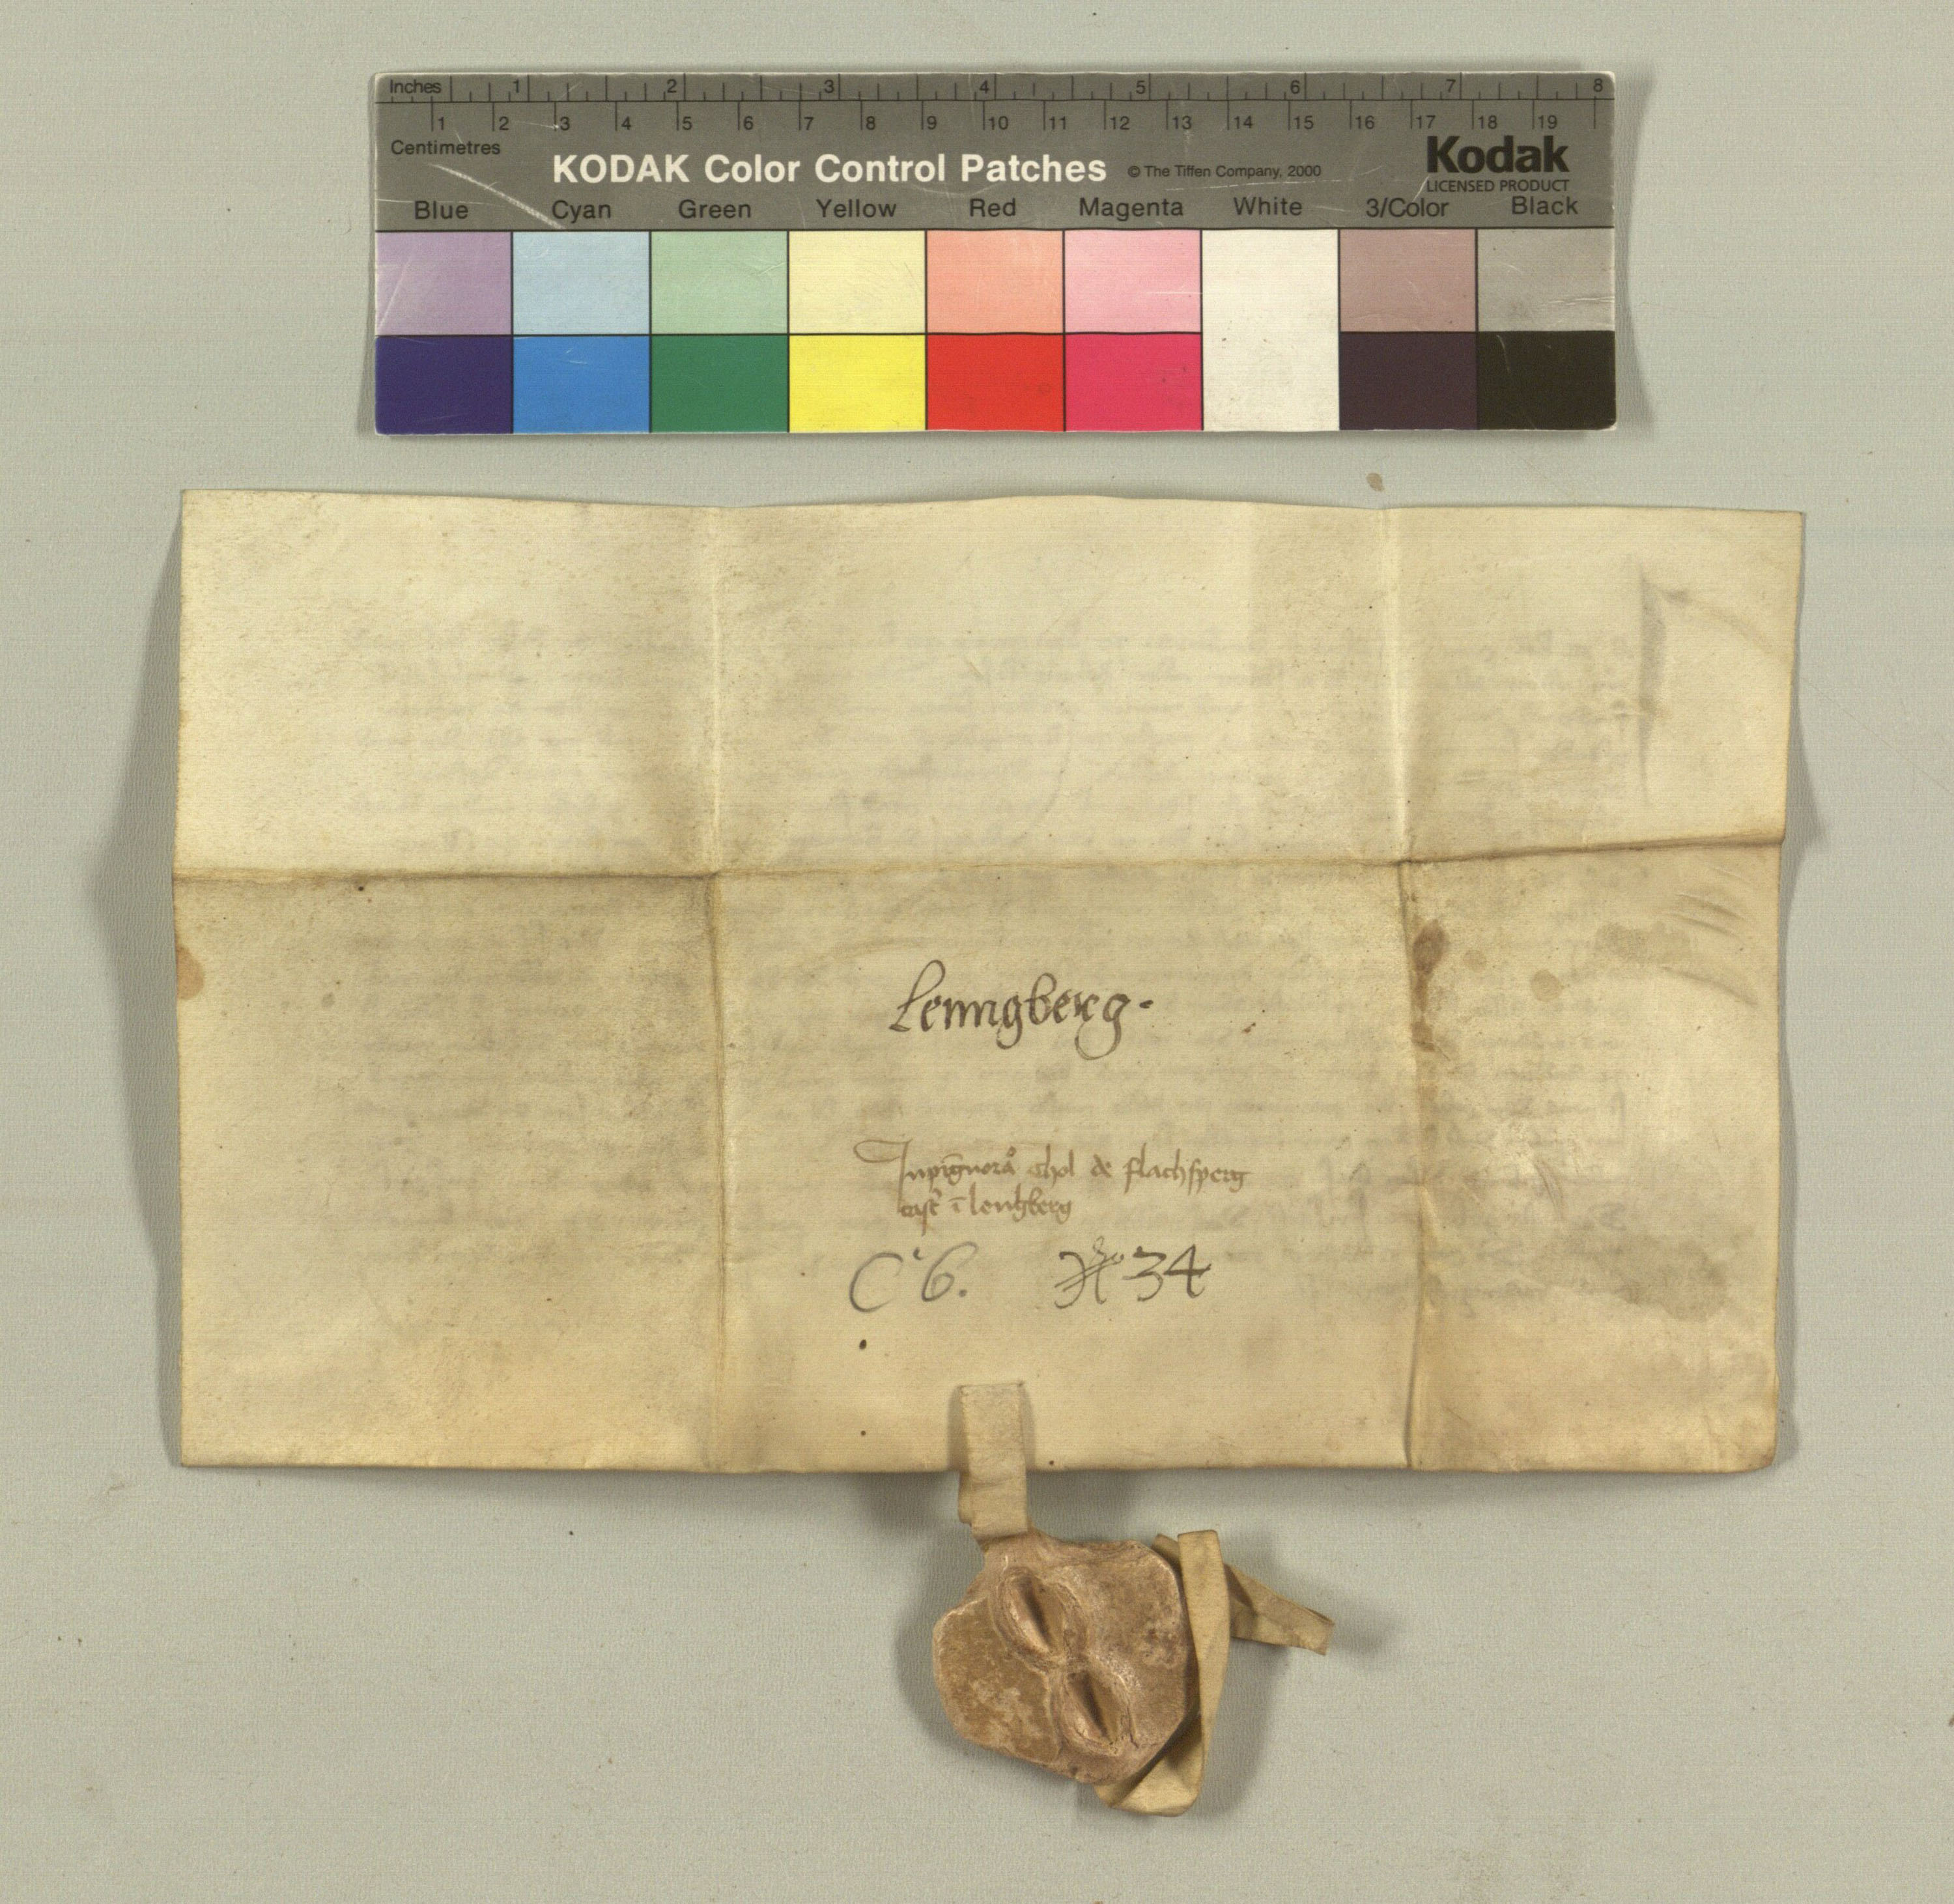 Inches 1 2 3 4 5 6 7 8
1 2 3 4 5 6 7 8 9 10 11 12 13 14 15 16 17 18 19
Centimetres
KODAK Color Control Patches © The Tiffen Company, 2000 Kodak
LICENSED PRODUCT
Blue Cyan Green Yellow Red Magenta White 3/Color Black
Lenngberg.
Inpignora chol de flachsperg
cast ī lengberg
C 6. No 34